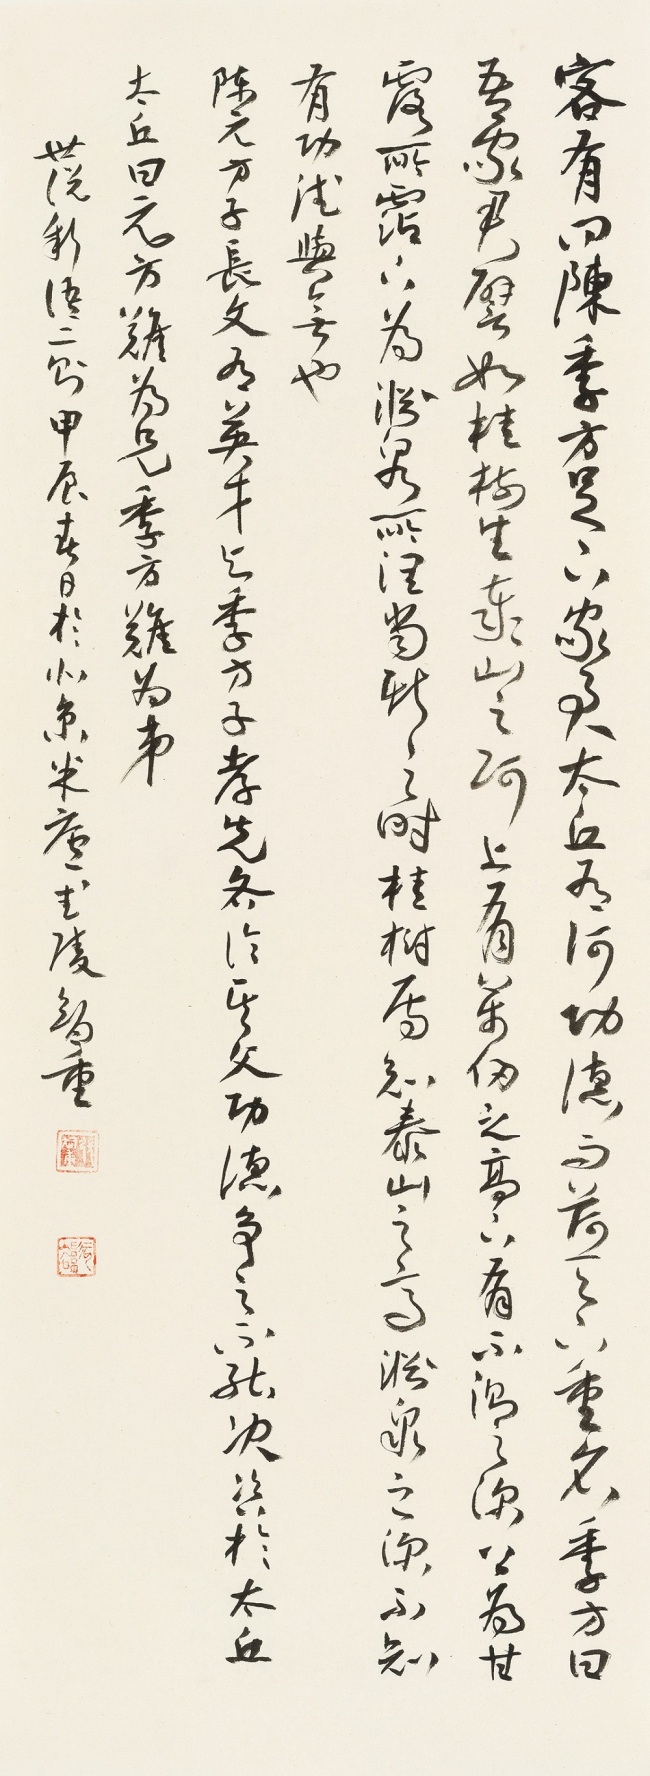 客有问陳季方足下家君太丘有何功德而荷天下重名季方曰
吾家君譬如桂樹生泰山之阿上有萬仞之高下有不測之深上為甘
露所霑下為淵泉所潤當斯之時桂樹焉知泰山之高淵泉之深不知
有功德與無也
陳元方子長文有英才與季方子孝先各論其父功德爭之不能決咨於太丘
太丘曰元方難為兄季方難為弟
世說新語二則甲辰春日於北京米庵武陵智重